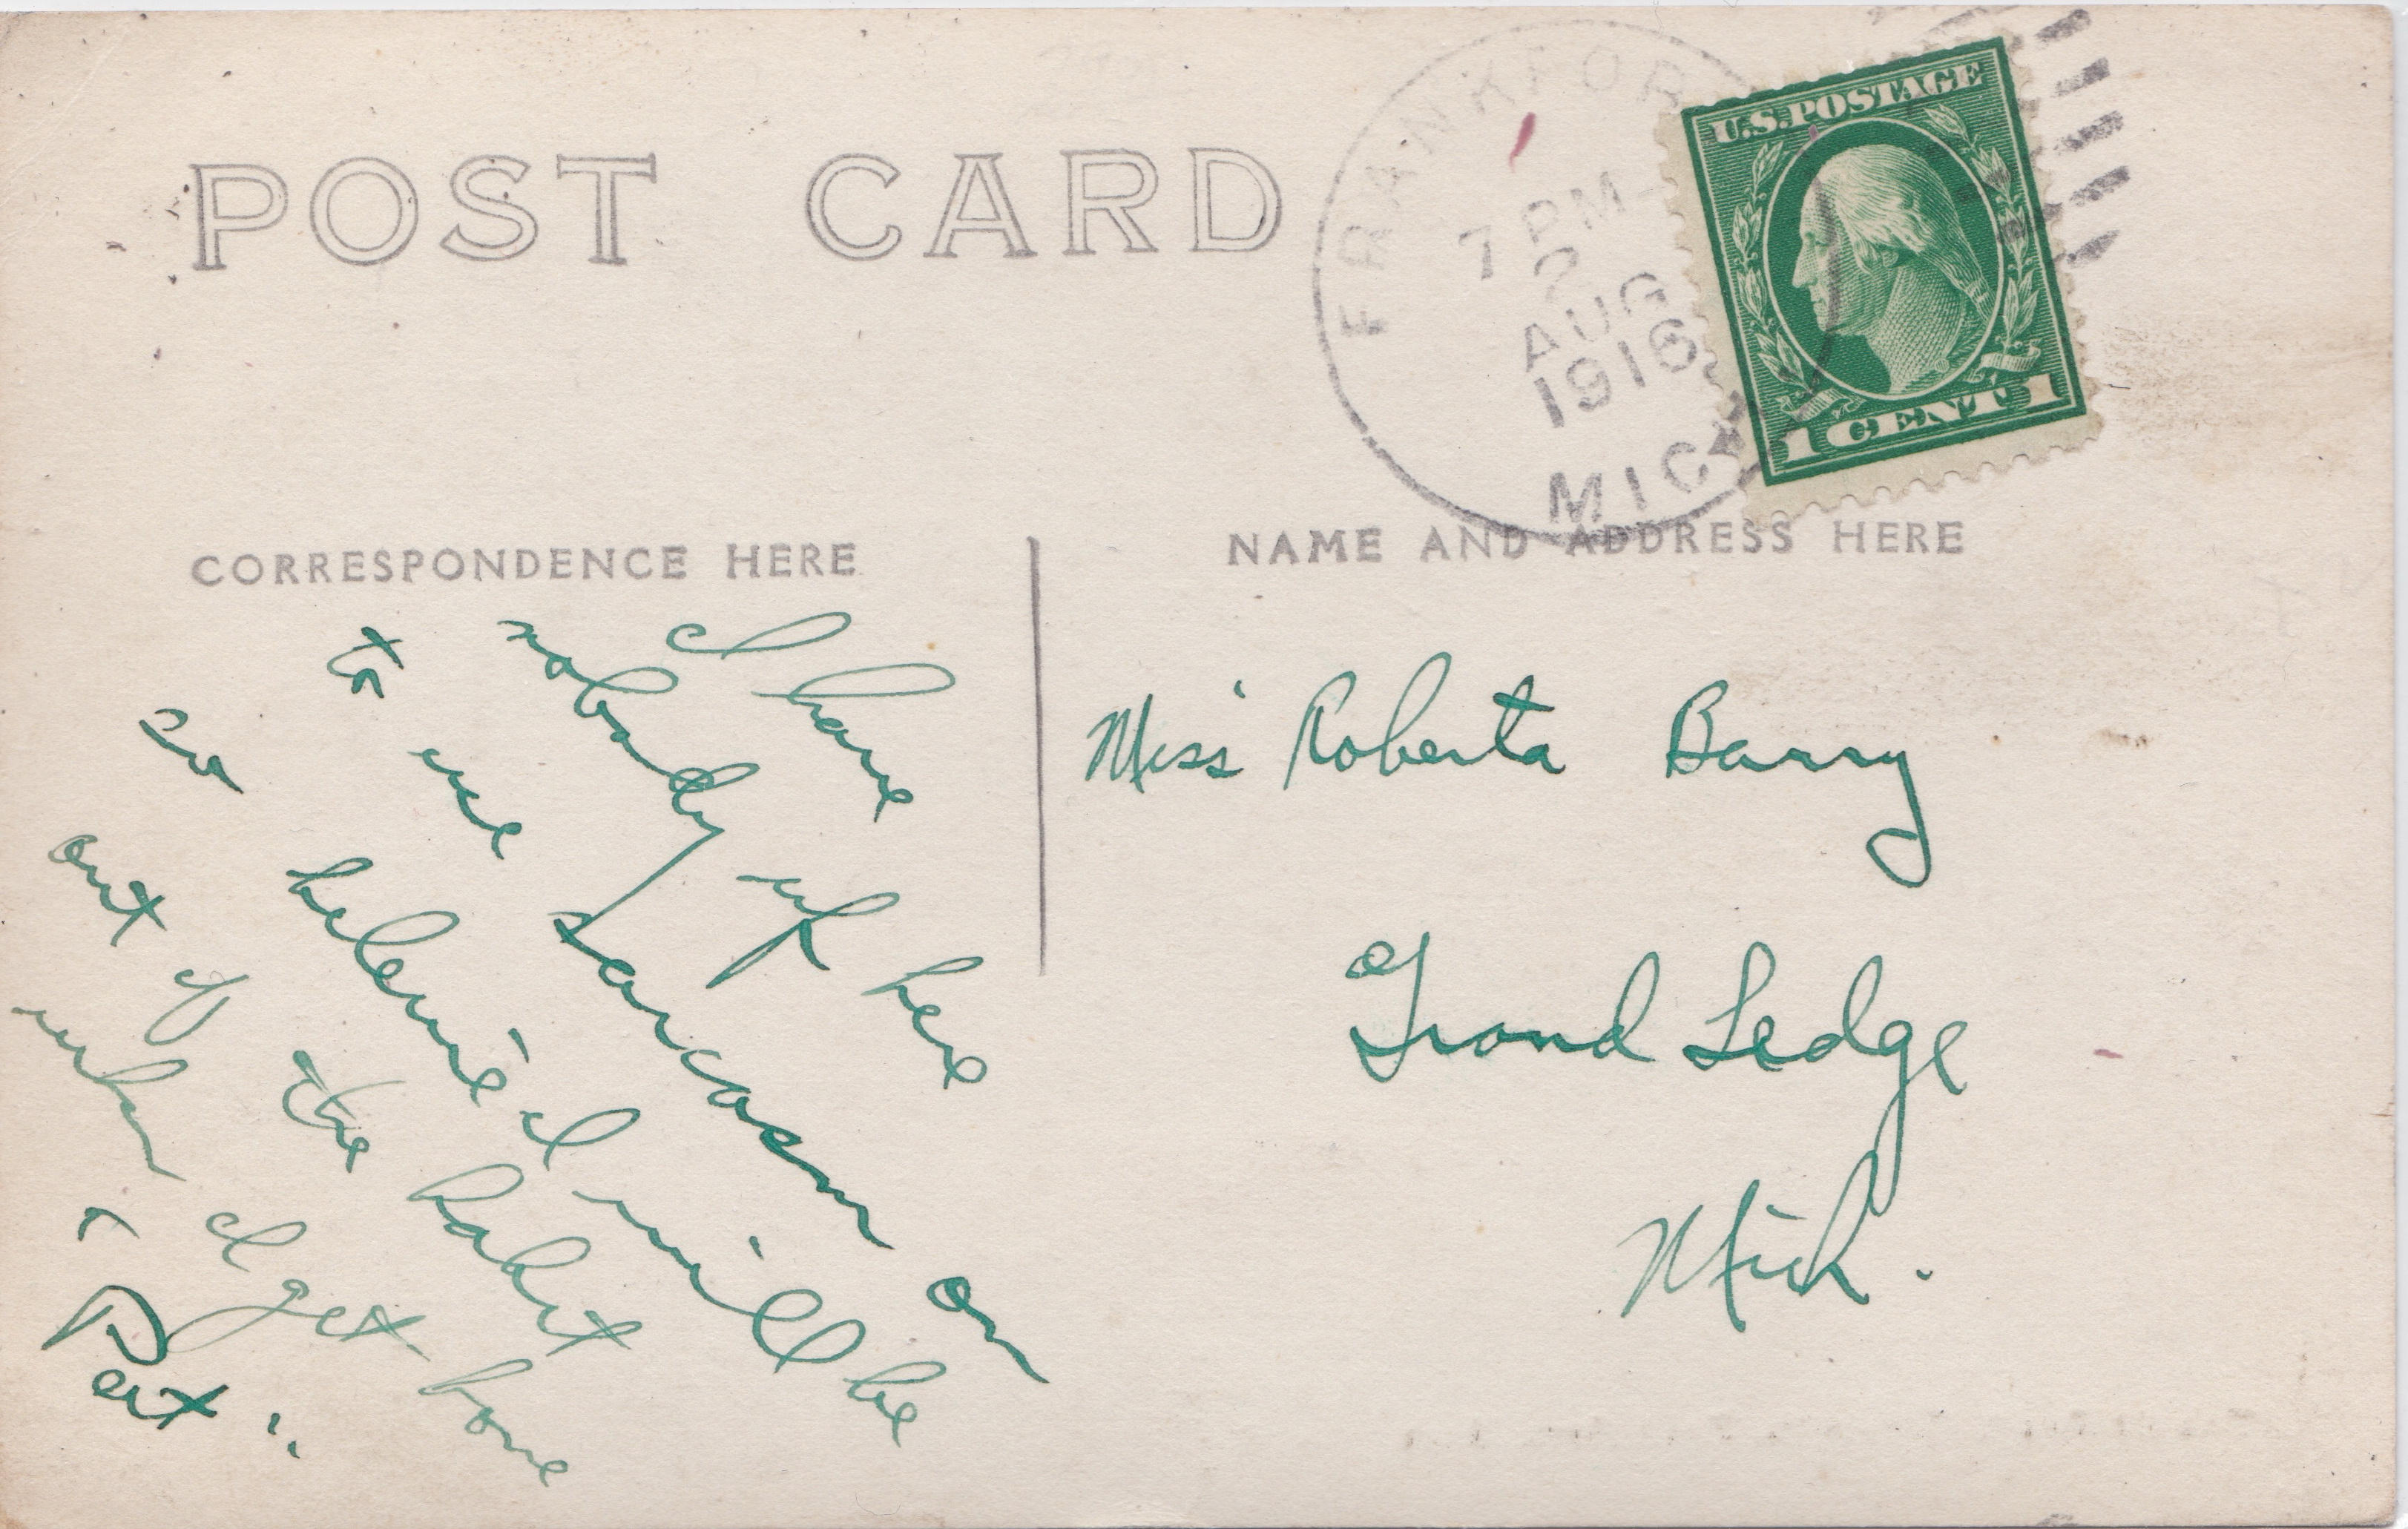 POST CARD
FRANKFOR
7 PM
2
AUG
1916
MICH
U.S. POSTAGE
1 CENT 1
CORRESPONDENCE HERE
NAME AND ADDRESS HERE
I have
nobody up here
to use sarcasm on
so believe I will be
out of the habit
when I get home
Pert
Miss Roberta Barry
Grand Ledge
Mich.